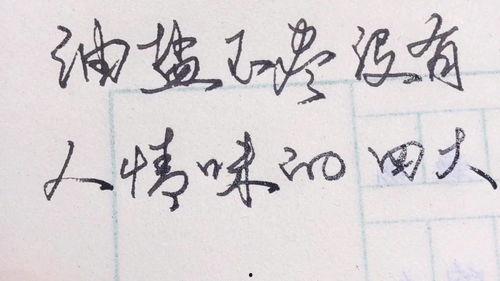 油盐不尽没有
人情味的四大